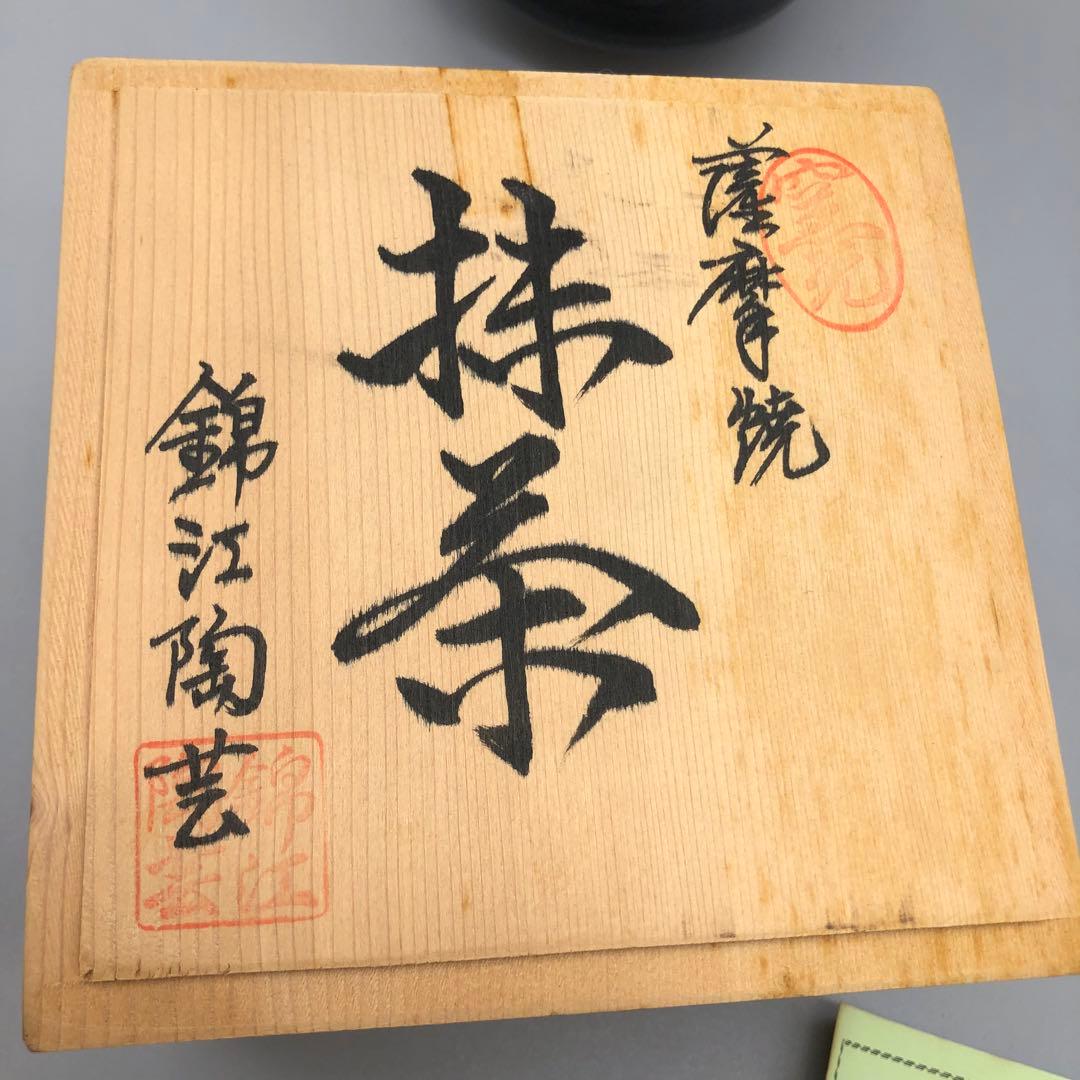 薩摩焼
抹茶
錦江陶芸
錦江
陶芸